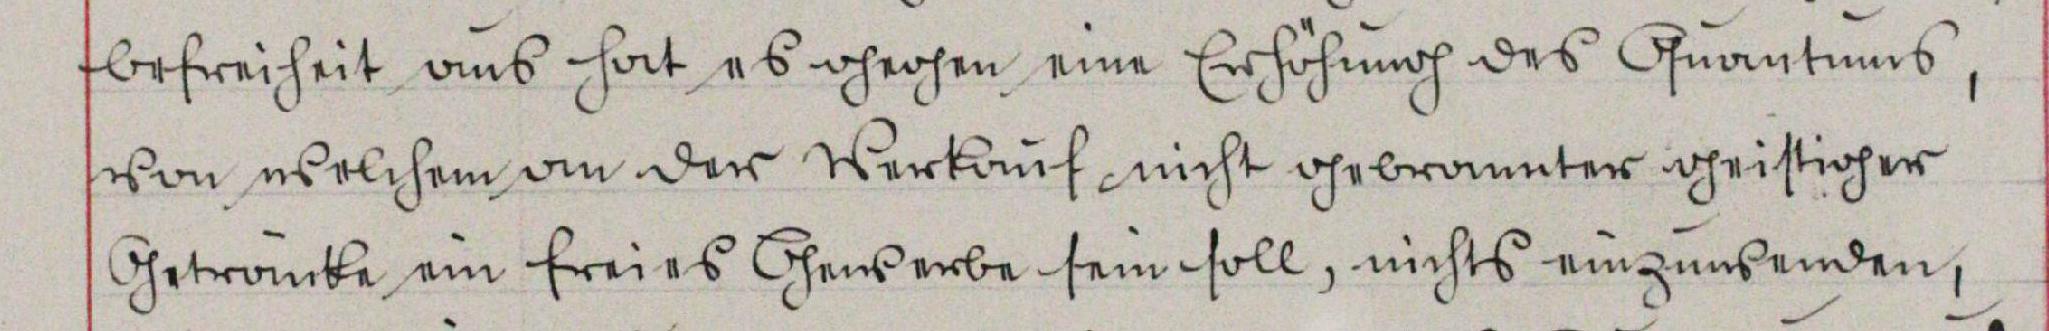 befreiheit aus hat es gegen eine Erhöhung des Quantums,
von welchem an der Verkauf nicht gebrannter geistiger
Getränke ein freies Gewerbe sein soll, nichts einzuwenden,